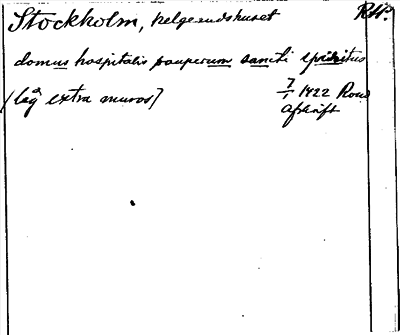 Stockholm, helgeandshuset RAP.
domus hospitalis pauperum sancti spiritus
(låg extra muros) 7/1 1422 Rom
Afskrift